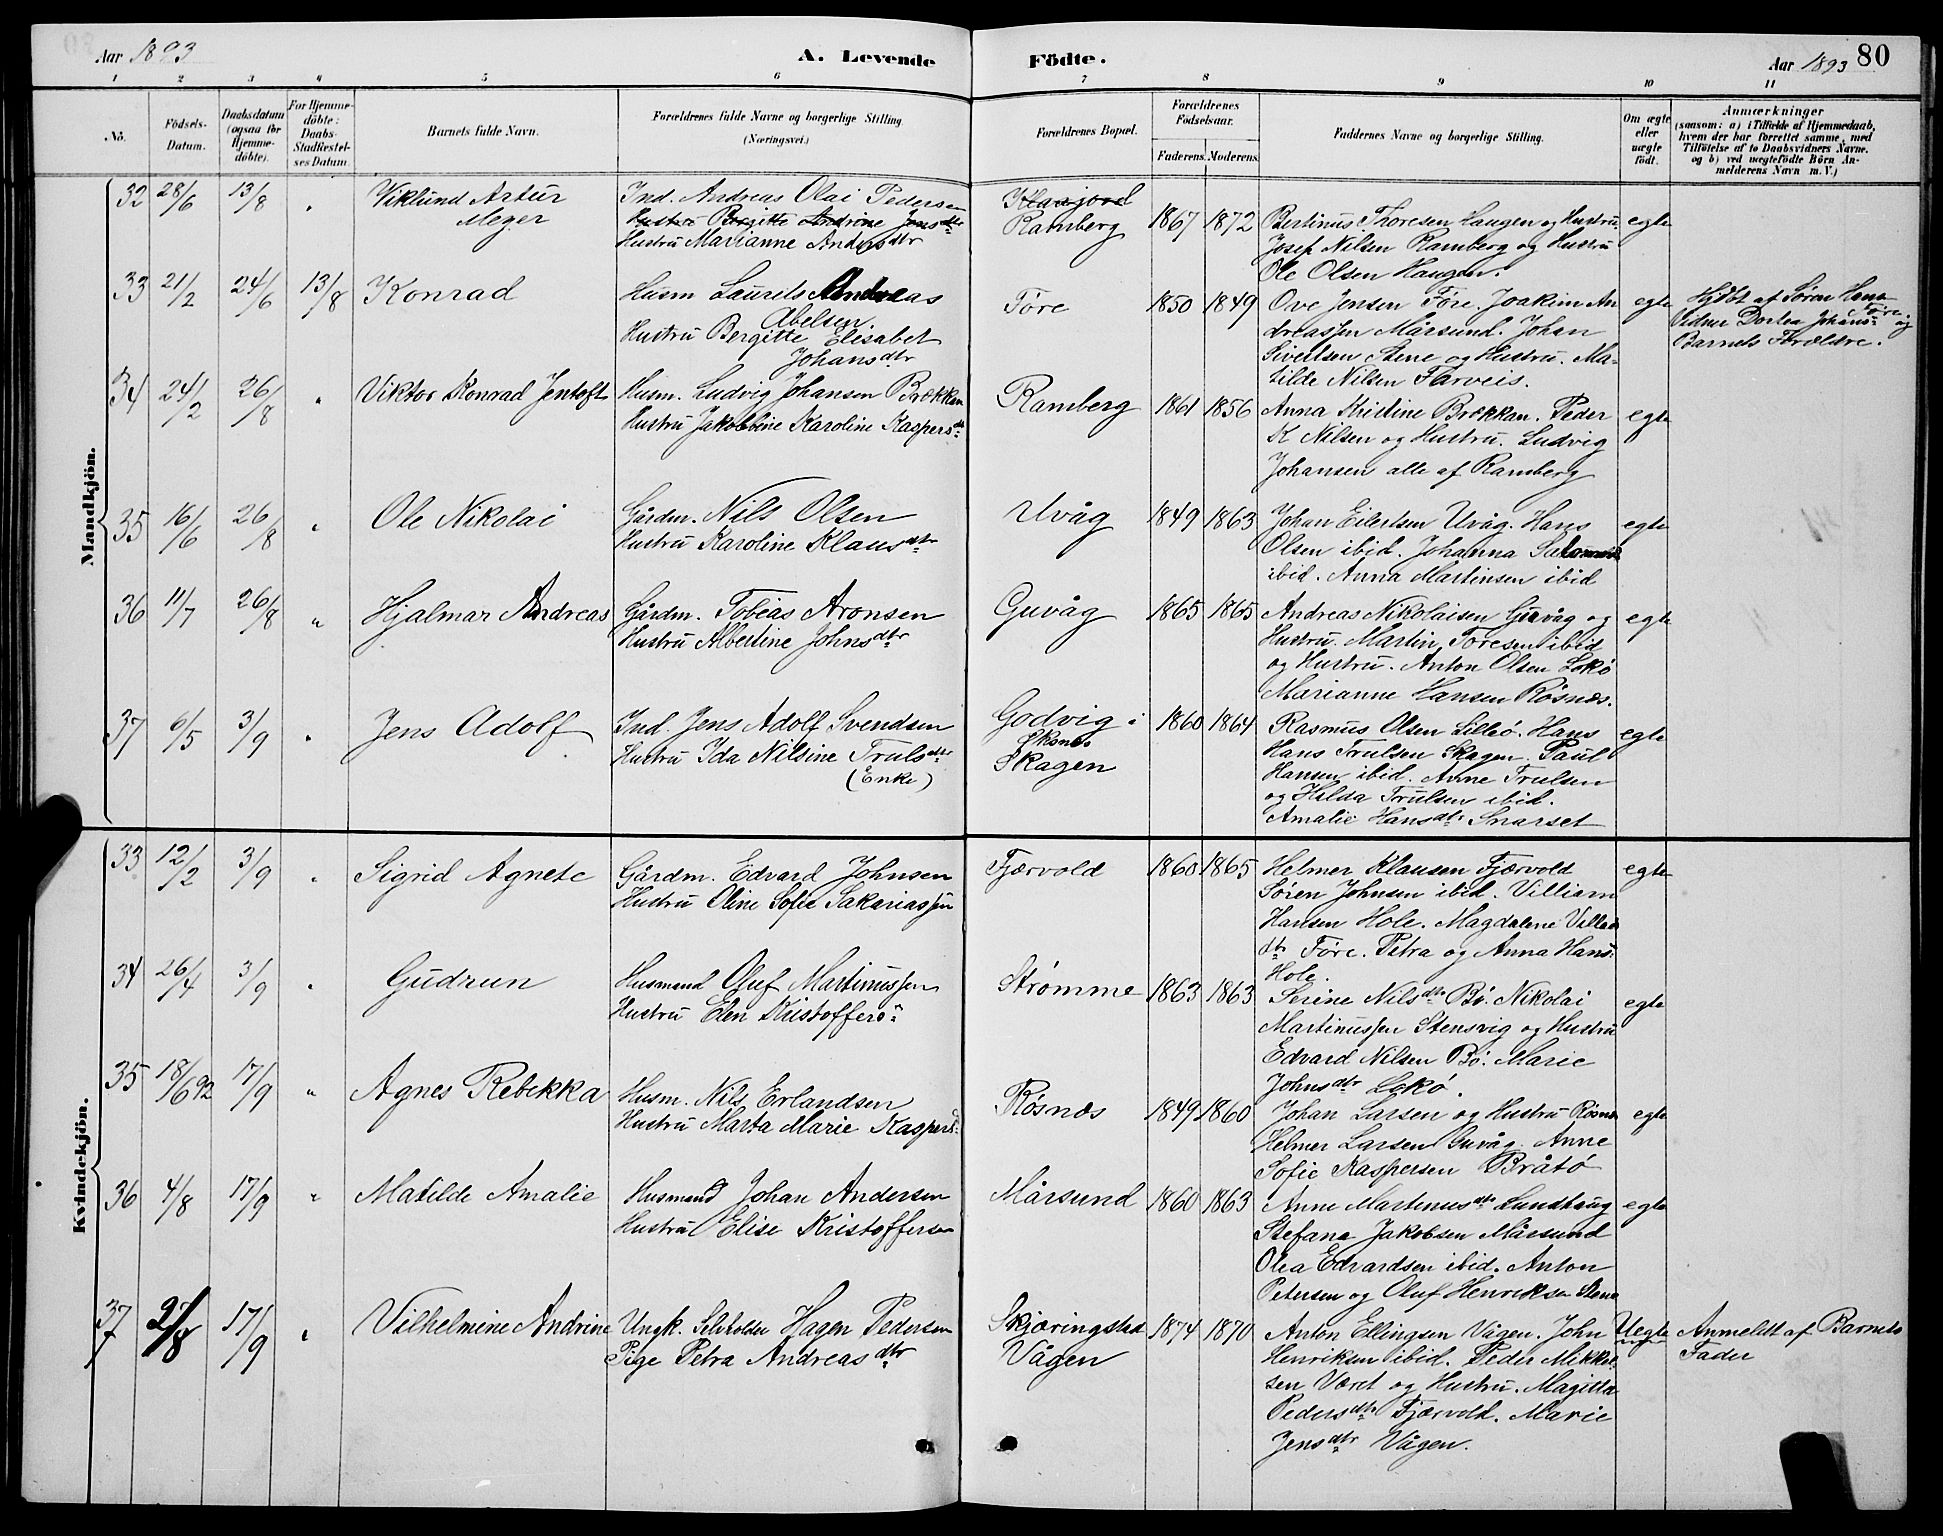 Aar 1893
A. Levende
Födte.
Aar 1893
80
1 2 3 4 5 6 7 8 9 10 11
No.
Födsels-Datum.
Daabsdatum (ogsaa for Hjemme-döbte).
For Hjemme-döbte: Daabs-Stadfæstelses Datum.
Barnets fulde Navn.
Forældrenes fulde Navne og borgerlige Stilling.
(Næringsvei.)
Forældrenes Bopæl.
Forældrenes Födselsaar.
Faderens. Moderens.
Faddernes Navne og borgerlige Stilling.
Om ægte eller uægte födt.
Anmærkninger
(saasom: a) i Tilfælde af Hjemmedaab,
hvem der har forrettet samme, med
Tilföielse af to Daabsvidners Navne.
og b) ved uægtefödte Börn An-
melderens Navn m. V.)
Mandkjön.
32 28/6 13/8 " Viklund Artur
Meyer
Ind. Andreas Olai Pedersen
Hustru Bergitte Andrine Jensdtr
Hustru Marianne Andersdtr
Klaujord
Ramberg
1867 1872
Bertinus Thoresen Haugen og Hustru
Josef Nilsen Ramberg og Hustru
Ole Olsen Haugen.
egte
33 21/2 24/6 13/8 Konrad
Husm Laurits Andreas
Abelsen.
Hustru Bergitte Elisabet
Johansdtr
Føre
1850 1849
Ove Jensen Føre. Joakim An
dreassen Mårsund. Johan
Sivertsen Stene og Hustru. Ma-
tilde Nilsen Farveis.
egte
Hjdbt af Søren Hans
Føre.
Vidner Dortea Johans- og
Barnets Forældre.
34 24/2 26/8 " Viktor Konrad Jentoft
Husm. Ludvig Johansen Brækkan
Hustru Jakobbine Karoline Kaspersdtr
Ramberg
1861 1856
Anna Kristine Brækkan. Peder
K Nilsen og Hustru. Ludvig
Johansen alle af Ramberg
egte
35 16/6 26/8 " Ole Nikolai
Gårdm. Nils Olsen
Hustru Karoline Klausdtr
Uvåg
1849 1863
Johan Eilertsen Uvåg. Hans
Olsen ibid. Johanna
ibid. Anna Martinsen ibid
egte
36 11/7 26/8 " Hjalmar Andreas
Gårdm. Tobias Aronsen
Hustru Albertine Johnsdtr
Guvåg
1865 1865
Andreas Nikolaisen Guvåg og
Hustru. Martin Toresen ibid
og Hustru. Anton Olsen Lokø
Marianne Hansen Røsnæs.
egte
37 6/5 3/9 " Jens Adolf
Ind. Jens Adolf Svendsen
Hustru Ida Nilsine Trulsdtr
(Enke)
Godvig i
Skagen
1860 1864
Rasmus Olsen Lilleø. Hans
Hans Trulsen Skagen. Paul
Hansen ibid. Anne Trulsen
og Hilda Trulsen ibid.
Amalie Hansdtr Snarset
egte
Kvindekjön.
33 12/2 3/9 " Sigrid Agnete
Gårdm. Edvard Johnsen
Hustru Oline Sofie Sakariassen
Fjærvold
1860 1865
Helmer Klausen Fjærvold
Søren Johnsen ibid. Villiam
Hansen Hole. Magdalene Villea
dtr Føre. Petra og Anna Hans-
Hole.
egte
34 26/4 3/9 " Gudrun
Husmand Oluf Martinussen
Hustru Elen Kristoffers-
Strømme
1863 1863
Serine Nilsdtr Bø. Nikolai
Martinussen Stensvig og Hustru
Edvard Nilsen Bø. Marie
Johnsdtr Lokø.
egte
35 18/6 92 17/9 " Agnes Rebekka
Husm. Nils Erlandsen
Hustru Marta Marie Kaspers-
Røsnæs
1849 1860
Johan Larsen og Hustru Røsnæ
Helmer Larsen Guvåg. Anne
Sofie Kaspersen Bråtø
egte
36 4/8 17/9 " Matilde Amalie
Husmand Johan Andersen
Hustru Elise Kristoffersen
Mårsund
1860 1863
Anne Martinusdtr Lundhaug
Stefana Jakobsen Mårsund
Olea Edvardsen ibid. Anton
Petersen og Oluf Henriksen Stene
egte
37 2/8 17/9 " Vilhelmine Andrine
Ungk. Selvholder Hagen Pedersen
Pige Petra Andreasdtr
Skjæringstad
Vågen
1874 1870
Anton Ellingsen Vågen. John
Henriksen ibid. Peder Mikkel-
sen Været og Hustru. Magitta
Pedersdtr Fjærvold. Marie
Jensdtr Vågen.
Uegte
Anmeldt af Barnets
Fader